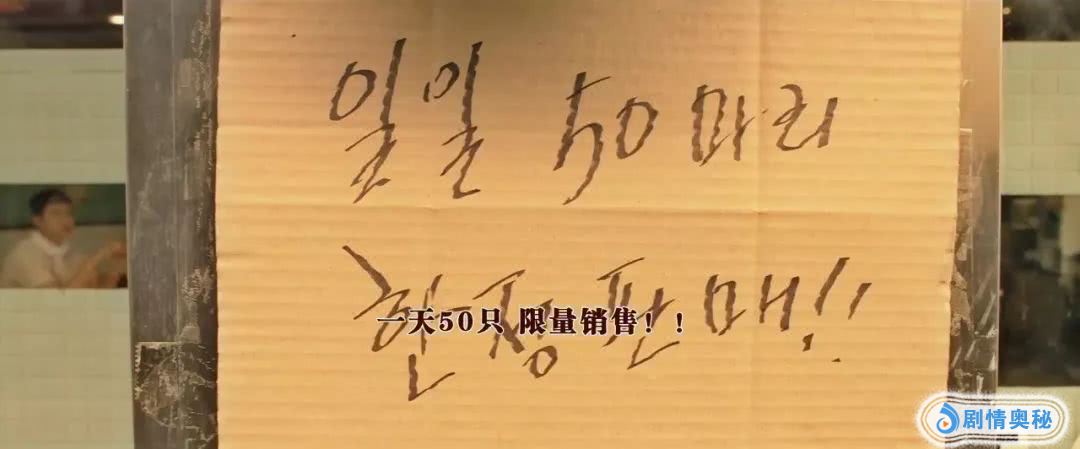 일일 50 마리
한정 판매!!
一天50只 限量销售！！
剧情奥秘